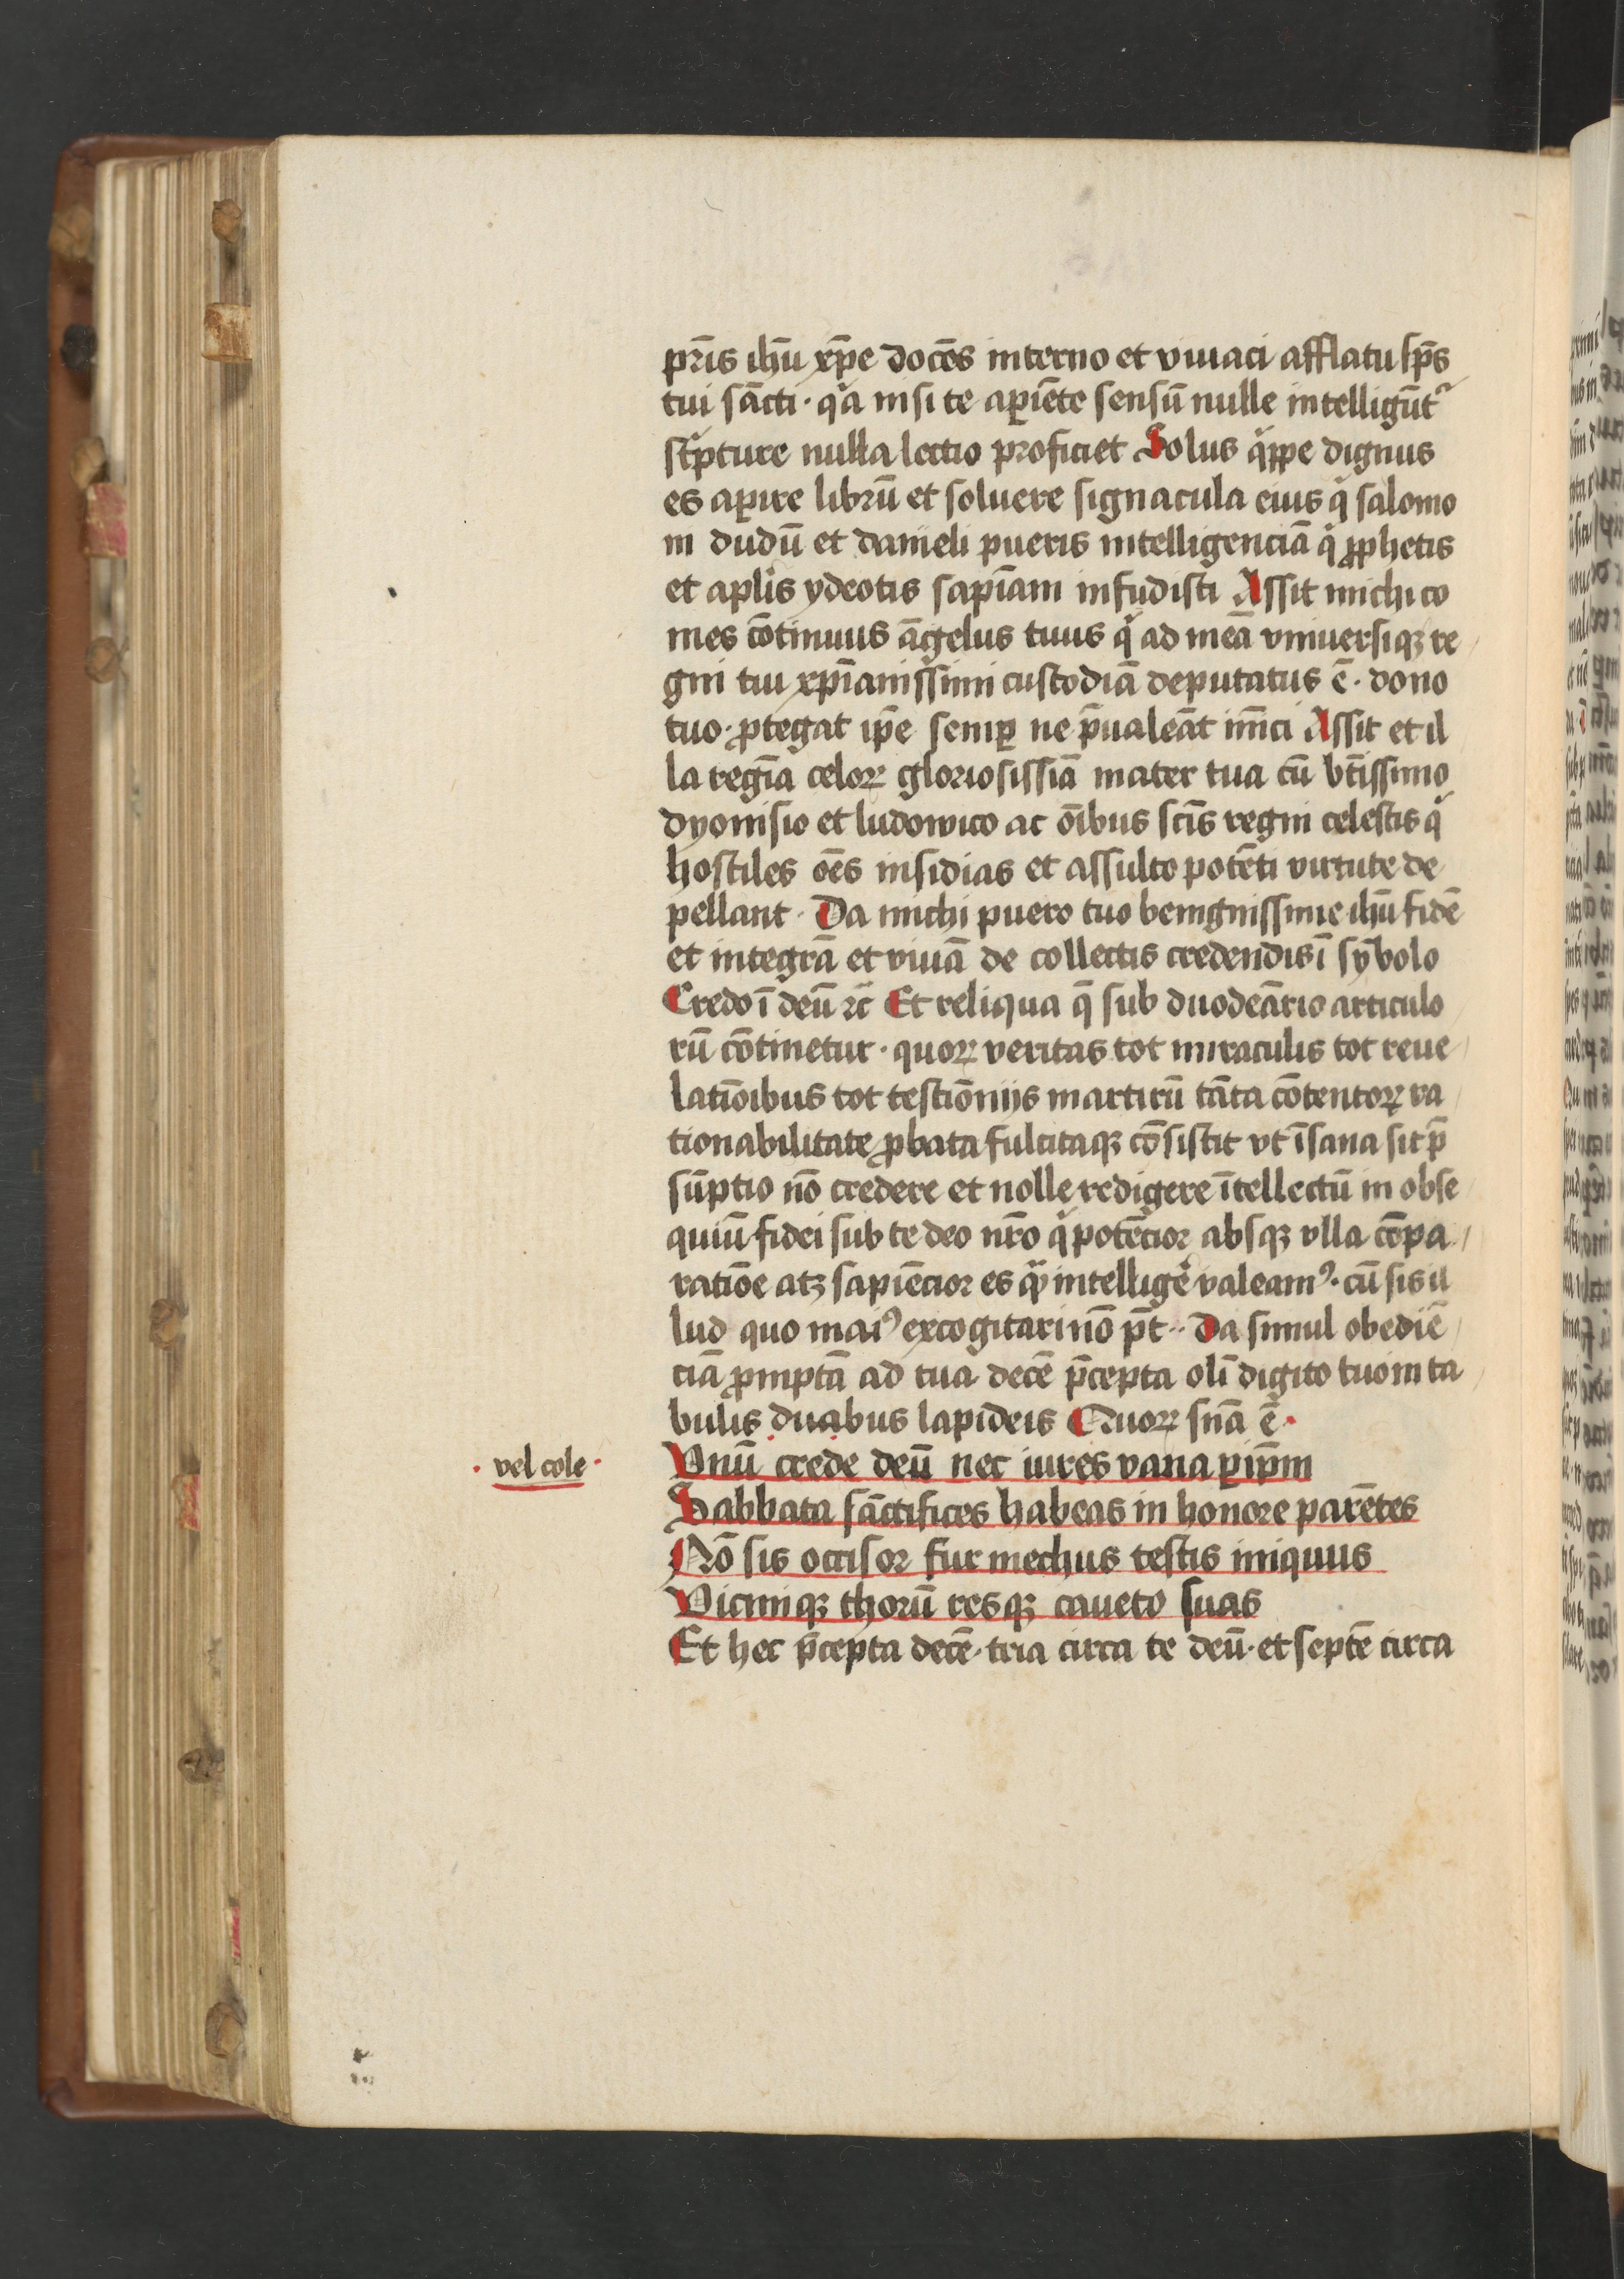 pr̄is ihū xp̄e docēs interno et viuaci afflatu sp̄s
tui sāncti · qͣa nisi te apiēte sensū nulle intelligūtᷣ
scͥpture nulla lectio proficiet Solus qͥppe dignus
es apire librū et soluere signacula eius qͥ salomo
ni dudū et danieli pueris intelligenciā qͥ ꝓphetis
et aplis ydeotis sapīam infudisti Assit michi co
mes cōtinuus āgelus tuus qͥ ad meā vniuersiqꝫ re
gni tui xp̄ianissimi custodiā deputatus ē · dono
tuo · ꝓtegat ip̄e semꝑ ne p̄ualeāt iīmci Assit et il
la regīa celoꝝ gloriosissīa mater tua cū btīssimo
dyonisio et ludowico ac oībus scīs regni celestis qͥ
hostiles oēs insidias et assulto potēti virtute de
pellant · Da michi puero tuo benignissime ihū fidē
et integrā et viuā de collectis credendis ī sȳbolo
Credo ī deū ꝛc̄ Et reliqua q̄ sub duodeārio articulo
rū cōtinetur · quoꝝ veritas tot miraculis tot reue
latiōibus tot testiōniis martirū tāta cōtentoꝝ ra
tionabilitate ꝓbata fultitaqꝫ cōsistit vt īsana sit p̄
sūptio nō credere et nolle redigere ītellectū in obse
quiū fidei sub te deo nr̄o qͥ potēcior absqꝫ vlla cōpa
ratiōe atꝫ sapiēcior es qͣꝫ intelligē valeamꝰ · cū sis il
lud quo maiꝰ excogitari nō pt̄ · Da simul obediē
ciā ꝓmptā ad tua decē p̄cepta olī digito tuo in ta
bulis duabus lapideis Quoꝝ sn̄a ē ·
· vel cole ·
Vnū crede deū nec iures vana ꝑ ip̄m
Sabbata sāctifices habeas in honore parētes
Nō sis occisor fur mechus testis iniquus
Vicinīqꝫ thorū resqꝫ caueto suas
Et hec p̄cepta decē · tria circa te deū · et septē circa